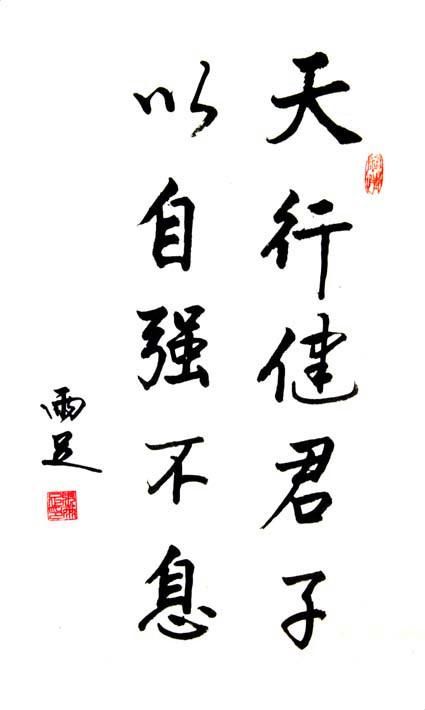 天行健君子
以自强不息
雨足